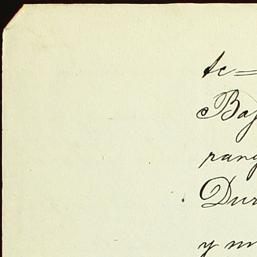 te=
Baj
rang
Dur
y m